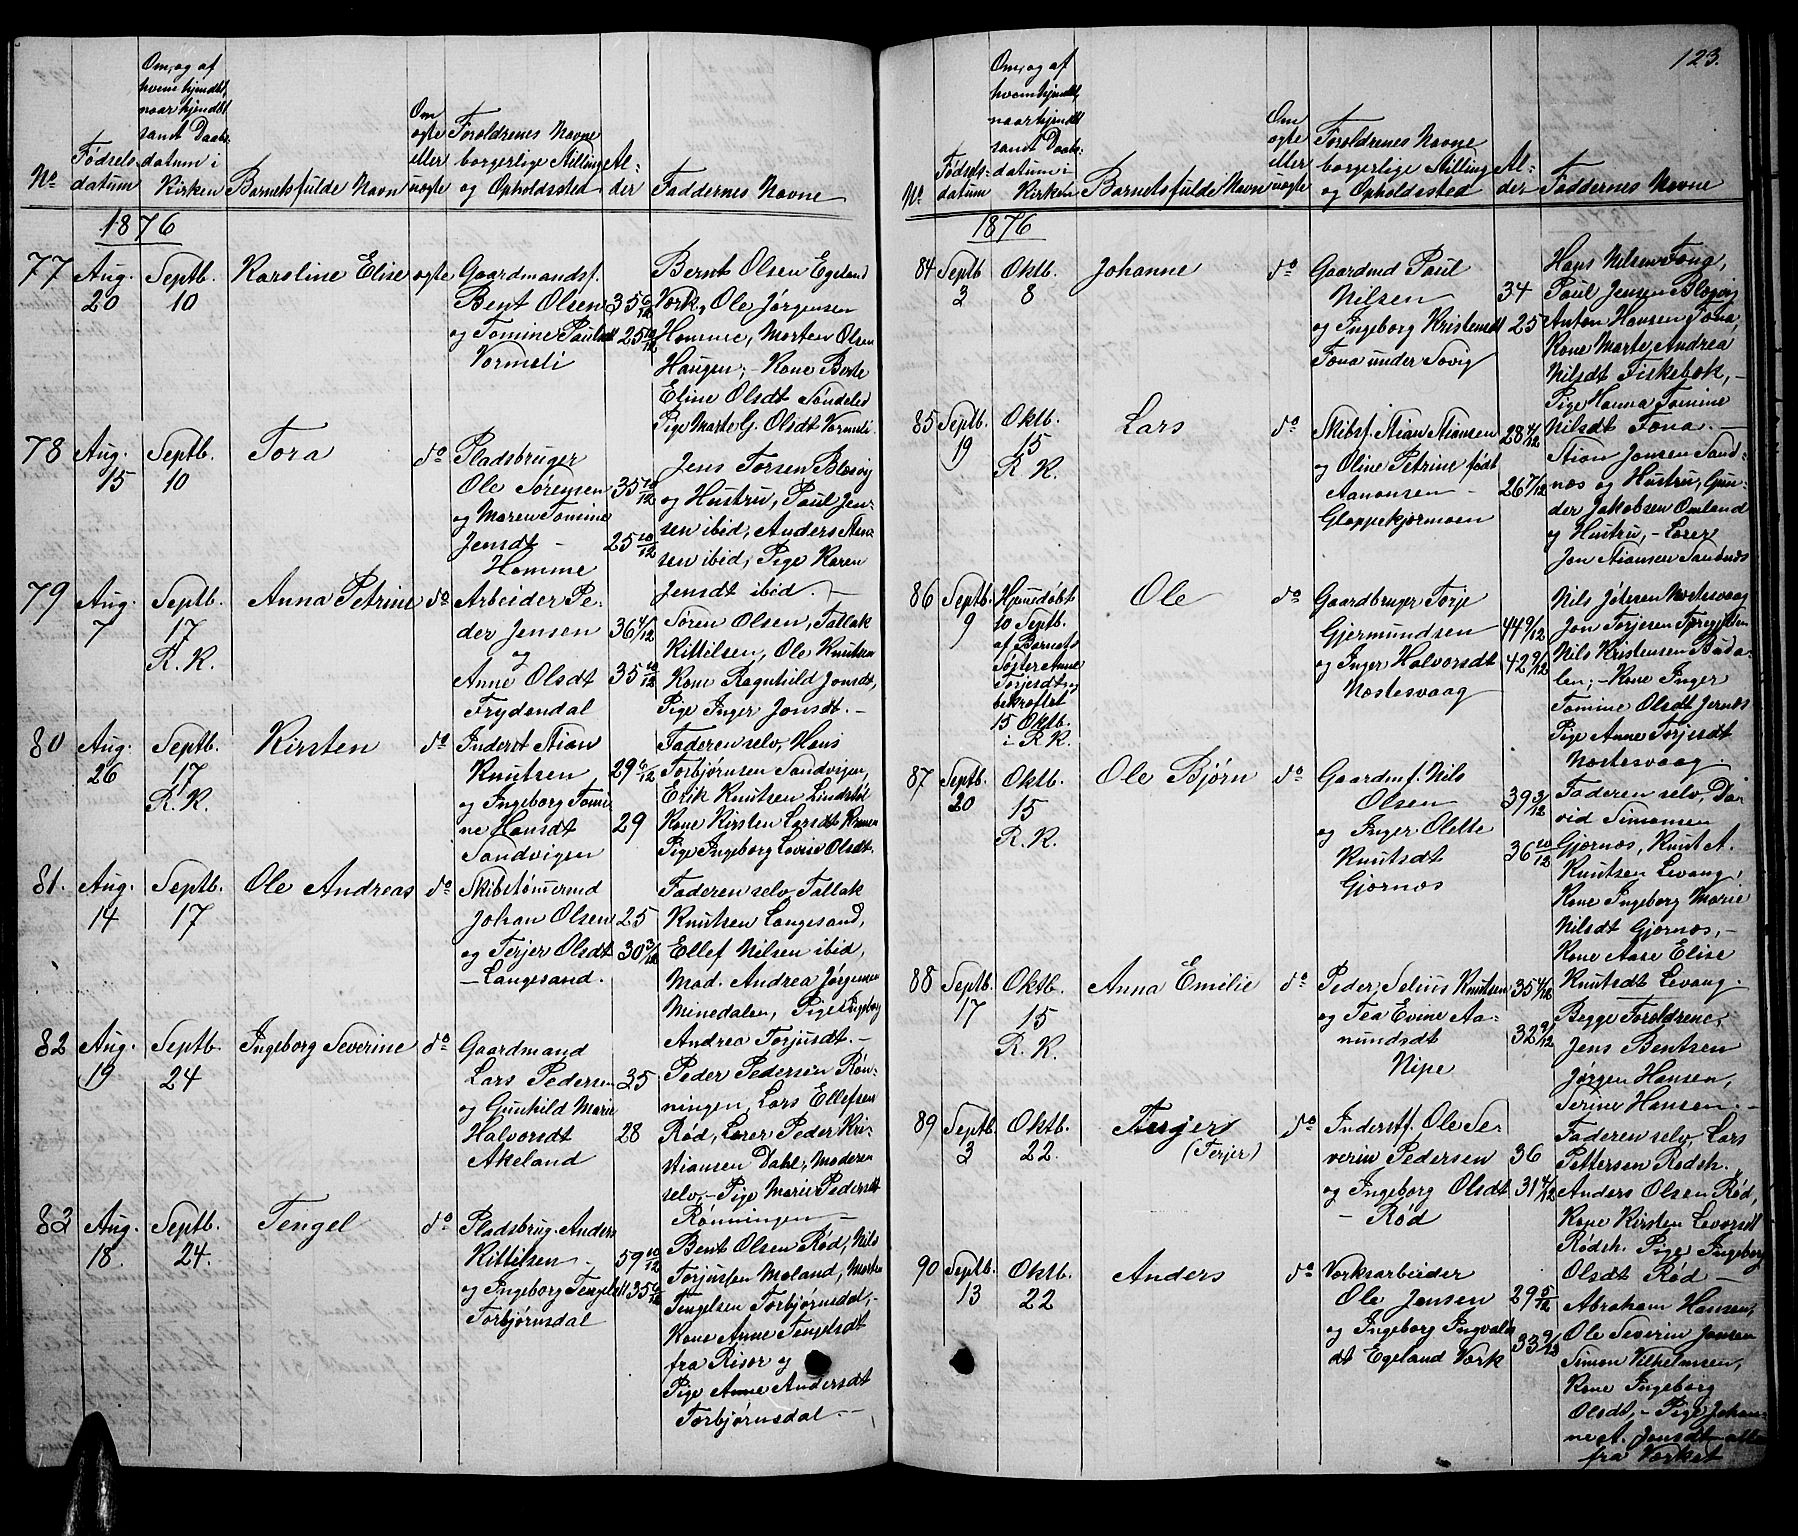 123.
No
Fødsels-
datum
Om, og af
hvem hjemdbt,
naar hjemdbt
samt Daabs-
datum i
Kirken
Barnets fulde Navn
Om
ægte
eller
uægte
Forældrenes Navne
borgerlige Stilling
og Opholdssted
Al-
der
Faddernes Navne
1876
77 Aug. 20
Septb. 10
Karoline Elise
ægte
Gaardmandsf.
Bent Olsen 35 6/12
og Tomine Paulsdt 25 10/12
Vormeli
Bernt Olsen Egeland
Værk, Ole Jørgensen
Homme, Morten Olsen
Haugen, - Kone Berte
Eline Olsdt Søndeled
Pige Marte G. Olsdt Vormeli.
78 Aug. 15
Septb. 10
Tora
do
Pladsbruger
Ole Sørensen 35 10/12
og Maren Tomine
Jensdt - 25 10/12
Homme
Jens Torsen Blesøy
og Hustru, Paul Jen-
sen ibid, Anders
sen ibid, Pige Karen
Jensdt ibid. -
79 Aug. 7
Septb. 17
R. K.
Anna Petrine
do
Arbeider Pe-
der Jensen 36 4/12
og
Anne Olsdt 35 10/12
Frydendal
Søren Olsen, Tallak
Kittilsen, Ole Knutsen
Kone Ragnhild Jonsdt,
Pige Inger Jonsdt. -
80 Aug. 26
Septb. 17
R. K.
Kirsten
do
Inderst Stian
Knutsen 29 6/12
og Ingeborg Tomi-
ne Hansdt 29
Sandvigen
Faderen selv, Hans
Torbjørnsen Sandvigen,
Erik Knutsen Lindstøl
Kone Kirsten Larsdt
Pige Ingeborg Lovise Olsdt.
81. Aug. 14
Septb. 17
Ole Andreas
do
Skibstømermd
Johan Olsen 25
og Terjer Olsdt 30 3/12
- Langesand.
Faderen selv, Tallak
Knutsen Langesand,
Ellef Nilsen ibid,
Mad. Andrea Jørgensen
Minedalen, Pige Ingeborg
Andrea Torjusdt. -
82 Aug. 19
Septb. 24
Ingeborg Severine
do
Gaardmand
Lars Pedersen 35
og Gunhild Marie
Halvorsdt 28
Akeland
Peder Pedersen Røn-
ningen, Lars Ellefsen
Rød, Lærer Peder Kri-
stiansen Dahl, Moderen
selv, - Pige Marie Pedersdt
Rønningen -
83 Aug. 18.
Septb. 24.
Tengel
do
Pladsbrug. Anders
Kittilsen - 59 10/12
og Ingeborg Tengelsdt 35 6/12
Torbjørnsdal
Bent Olsen Rød, Nils
Torjussen Moland, Morten
Tengelsen Torbjørnsdal, -
Kone Anne Tengelsdt
fra Risør og
Pige Anne Andersdt
Torbjørnsdal. -
No
Fødsels-
datum
Om, og af
hvem hjemdbt,
naar hjemdbt
samt Daabs-
datum i
Kirken
Barnets fulde Navn
Om
ægte
eller
uægte
Forældrenes Navne
borgerlige Stilling
og Opholdssted
Al-
der
Faddernes Navne
1876
84 Septb 3
Oktb. 8
Johanne
do
Gaardmd Paul
Nilsen 34
og Ingeborg Kristensdt 25
Fona under Søvig
Hans Nilsen Fona,
Paul Jensen Blesøy
Anton Hansen Fona,
Kone Marte Andrea
Nilsdt Fiskebæk, -
Pige Hanna Tomine
Nilsdt Fona. -
85 Septb. 19
Oktb. 15
R. K.
Lars
do
Skibsf. Stian Stiansen 28 4/12
og Oline Petrine født
Aanonsen - 26 7/12
Gloppekjærmoen
Stian Jensen Sand-
næs og Hustru, Gun-
der Jakobsen Omland
og Hustru, - Lærer
Jon Stiansen Sandnæs
86 Septb. 9
Hjemedøbt
10 Septb.
af Barnets
Søster Anne
Torjesdt og
bekræftet
15 Oktb.
i R. K.
Ole
do
Gaardbruger Torje
Gjermundsen 44 9/12
og Inger Halvorsdt 42 9/12
Næstesvaag
Nils Jølesen Næstesvaag
Jon Torjesen
Nils Kristensen Buda-
len, - Kone Inger
Tomine Olsdt Jernæs
Pige Anne Torjesdt
Næstesvaag -
87 Septb. 20
Oktb. 15
R. K.
Ole Bjørn
do
Gaardm f. Nils
Olsen 39 3/12
og Inger Olette
Knutsdt 36 10/12
Gjernæs
Faderen selv, Da-
vid Simonsen
Gjernæs, Knut A.
Knutsen Levang,
Kone Ingeborg Marie
Nilsdt Gjernæs, -
Kone Aase Elise
Knutsdt Levang.
88 Septb. 17
Oktb. 15
R. K.
Anna Emilie
do
Peder Selius Knutsen 35 4/12
og Tea Evine Aa-
nundsdt 32 9/12
Nipe
Begge Forældrene,
Jens Bentsen
Jørgen Hansen,
Serine Hansen. -
89 Septb. 3
Oktb. 22.
Terjer
(Terjer)
do
Inderstf. Ole Se-
verin Pedersen 36
og Ingeborg Olsdt 31 4/12
- Rød
Faderen selv, Lars
Pettersen Rødsh.
Anders Olsen Rød,
Kone Kirsten Levorsdt
Rødsh. Pige Ingeborg
Olsdt Rød -
90 Septb. 13
Oktb. 22
Anders
do
Værksarbeider
Ole Jensen 29 5/12
og Ingeborg Ingvalds 33 9/12
dt Egeland Værk
Abraham Hansen,
Ole Severin Jonsen
Simon Vilhelmsen,
Kone Ingeborg
Olsdt, - Pige Johan-
ne A. Jonsdt - alle
fra Værket